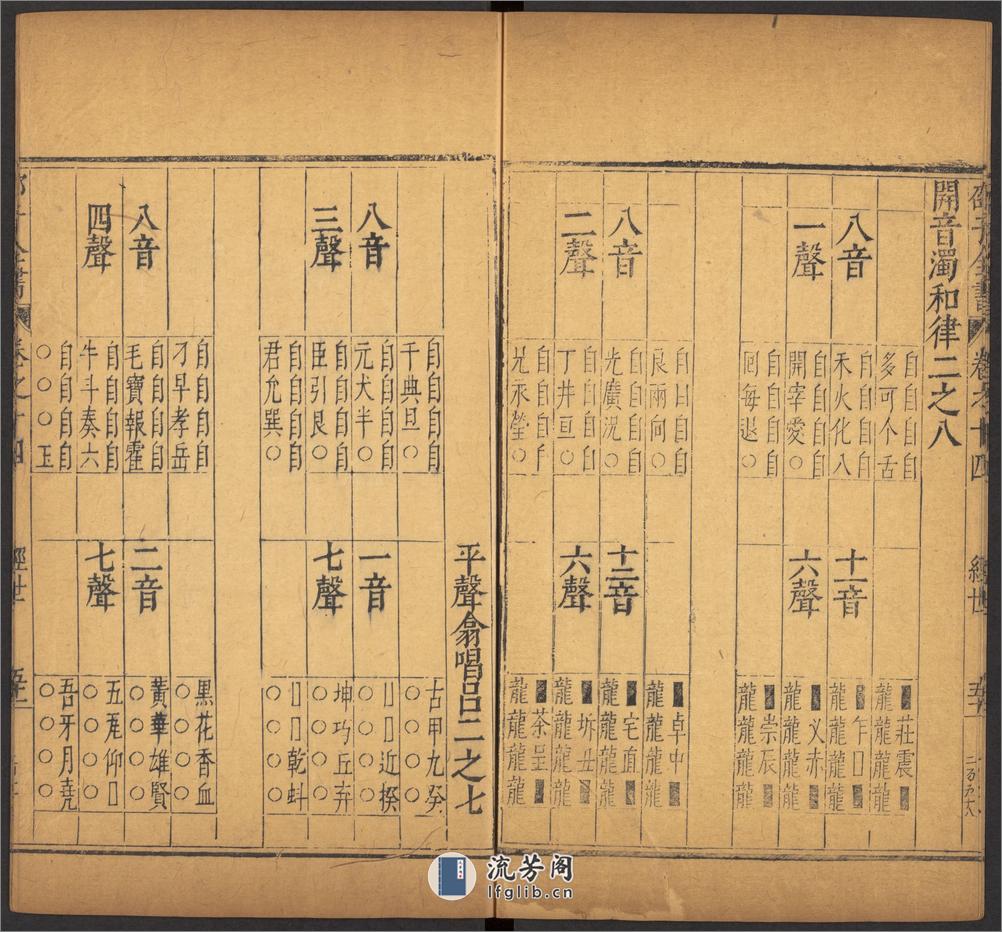 邵子全書 卷之十四 經世 五十一
開音濁和律二之八
八音
一聲
自自自自
多可个舌
自自自自
禾火化八
自自自自
開宰愛○
自自自自
回每退○
十一音
六聲
■莊震■
龍龍龍龍
■乍□■
龍龍龍龍
■乂赤■
龍龍龍龍
■崇辰■
龍龍龍龍
八音
二聲
自自自自
良兩向○
自自自自
光廣況○
自自自自
丁井亘○
自自自自
兄永瑩○
十二音
六聲
■卓中■
龍龍龍龍
■宅直■
龍龍龍龍
■坼丑■
龍龍龍龍
■茶呈■
龍龍龍龍
平聲翕唱呂二之七
八音
三聲
自自自自
千典旦○
自自自自
元犬半○
自自自自
臣引艮○
自自自自
君允巽○
一音
七聲
古甲九癸
○○○○
□□近揆
○○○○
坤巧丘弃
○○○○
□□乾蚪
○○○○
八音
四聲
自自自自
刁早孝岳
自自自自
毛寶報霍
自自自自
牛斗奏六
自自自自
○○○玉
二音
七聲
黑花香血
○○○○
黃華雄賢
○○○○
五瓦仰□
○○○○
吾牙月堯
○○○○
邵子全書 卷之十四 經世
流芳阁
lfglib.cn